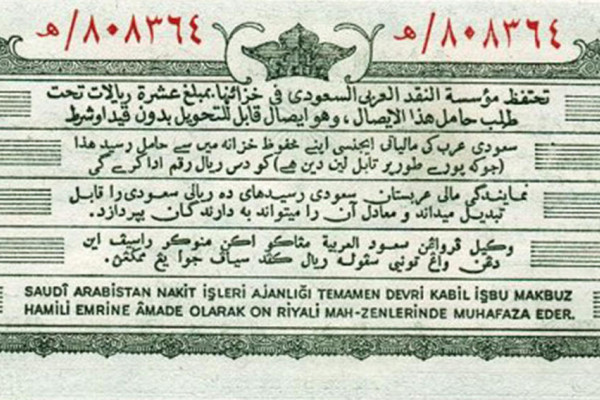 ه/٨٠٨٣٦٤ ه/٨٠٨٣٦٤
تحتفظ مؤسسة النقد العربى السعودى فى خزائنها بمبلغ عشرة ريالات تحت
طلب حامل هذا الايصال، وهو ايصال قابل للتحويل بدون قيد اوشرط
سعودی عرب کی مالیاتی ایجنسی اپنے محفوظ خزانہ میں سے حامل رسید هذا
(جو کہ پورے طور پر قابل لین دین ھے) کو دس ریال رقم ادا کرے گی
نمایندگی مالی عربستان سعودی رسیدهای ده ریالی سعودی را قابل
تبدیل میداند و معادل آن را میتواند به دارندگان بپردازد.
وكيل ڤرواڠن سعود العربية مڠاكو اكن منوكر راسيف اين
دڠن واڠ تونى سڤوله ريال كفد سياف جوا يڠ
SAUDÎ ARABİSTAN NAKİT İŞLERİ AJANLIĞI TEMAMEN DEVRİ KABİL İŞBU MAKBUZ
HAMİLİ EMRİNE ÂMADE OLARAK ON RİYALİ MAH-ZENLERİNDE MUHAFAZA EDER.